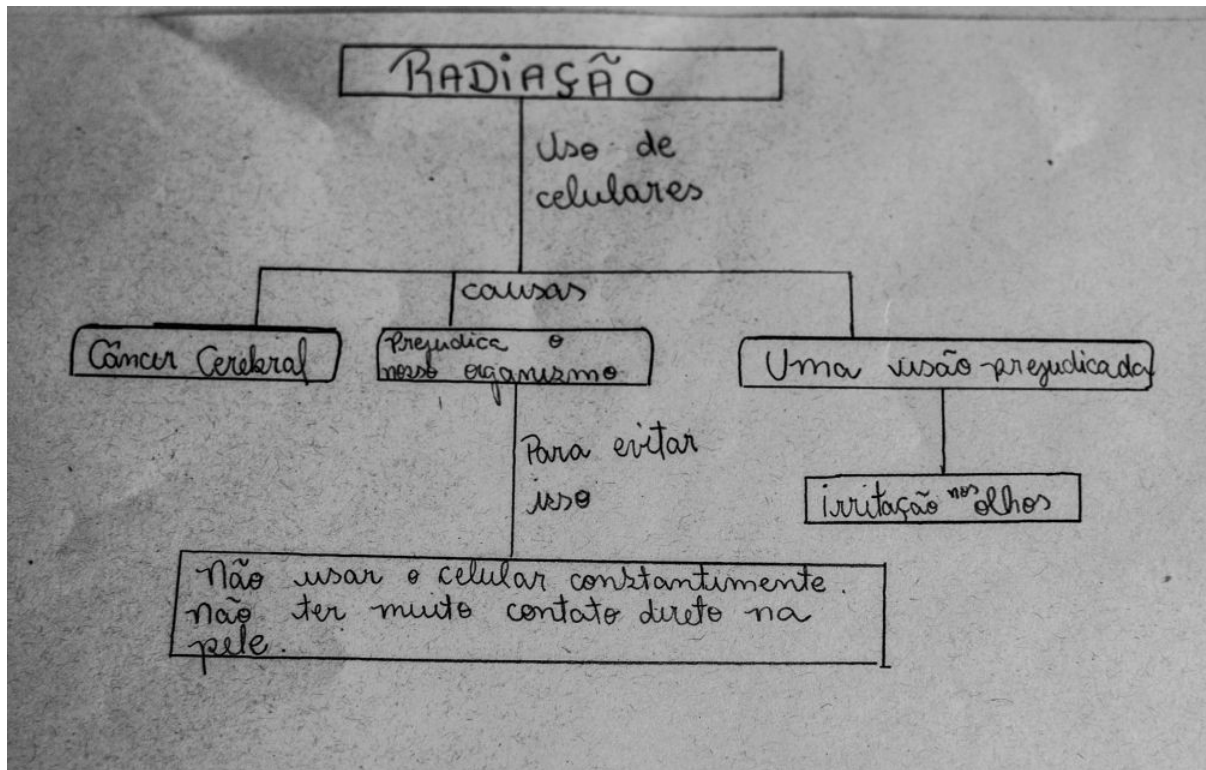 RADIAÇÃO
Uso de
celulares
causas
Câncer Cerebral
Prejudica o
nosso organizmo
Uma visão prejudicada
Para evitar
isso
irritação nos olhos
Não usar o celular constantimente.
não ter muito contato direto na
pele.